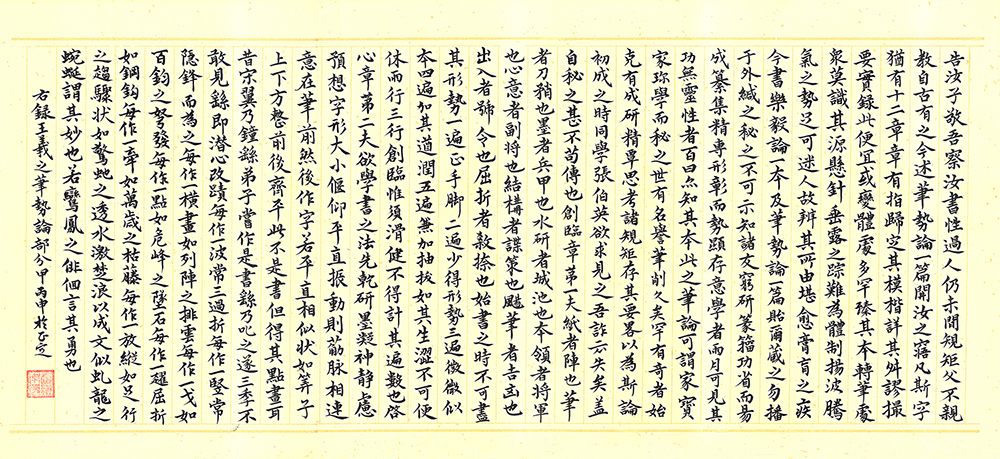 告汝子敬吾察汝書性過人仍未閑規矩父不親
教自古有之今述筆勢論一篇開汝之寤凡斯字
猶有十二章章有指歸定其模楷詳其舛謬撮
要實録此便宜或變體處多罕臻其本轉筆處
衆莫識其源懸針垂露之踪難為體制揚波騰
氣之勢足可迷人故辨其所由堪愈膏肓之疾
今書樂毅論一本及筆勢論一篇貽爾藏之勿播
于外緘之秘之不可示知諸友窮研篆籀功省而易
成纂集精專形彰而勢顕存意學者兩月可見其
功無靈性者百日亦知其本此之筆論可謂家寶
家珎學而秘之世有名譽筆削久矣罕有奇者始
克有成研精覃思考諸規矩存其要畧以為斯論
初成之時同學張伯英欲求見之吾詐云失矣盖
自秘之甚不苟傳也創臨章第一夫紙者陣也筆
者刀矟也墨者兵甲也水研者城池也本領者將軍
也心意者副将也結構者謀策也颺筆者吉凶也
出入者號令也屈折者殺捺也始書之時不可盡
其形勢一遍正手脚二遍少得形勢三遍微微似
本四遍加其遒潤五遍兼加抽拔如其生澀不可便
休兩行三行創臨惟須滑健不得計其遍數也啓
心章第二夫欲學書之法先乾研墨凝神静慮
預想字形大小偃仰平直振動則葥脉相連
意在筆前然後作字若平直相似状如筭子
上下方整前後齊平此不是書但得其點畫耳
昔宋翼乃鐘繇弟子嘗作是書繇乃叱之遂三季不
敢見繇即潜心改蹟每作一波常三過折每作一竪常
隱鋒而為之每作一横畫如列陣之排雲每作一戈如
百鈞之弩發每作一點如危峰之墜石每作一䟐屈折
如鋼鈎每作一牽如萬歲之枯藤每作一放縱如足行
之趨驟状如驚蛇之透水激楚浪以成文似虬龍之
蜿蜒謂其妙也若鸞鳳之俳徊言其勇也
右録王羲之筆勢論部分甲丙申於乙亥